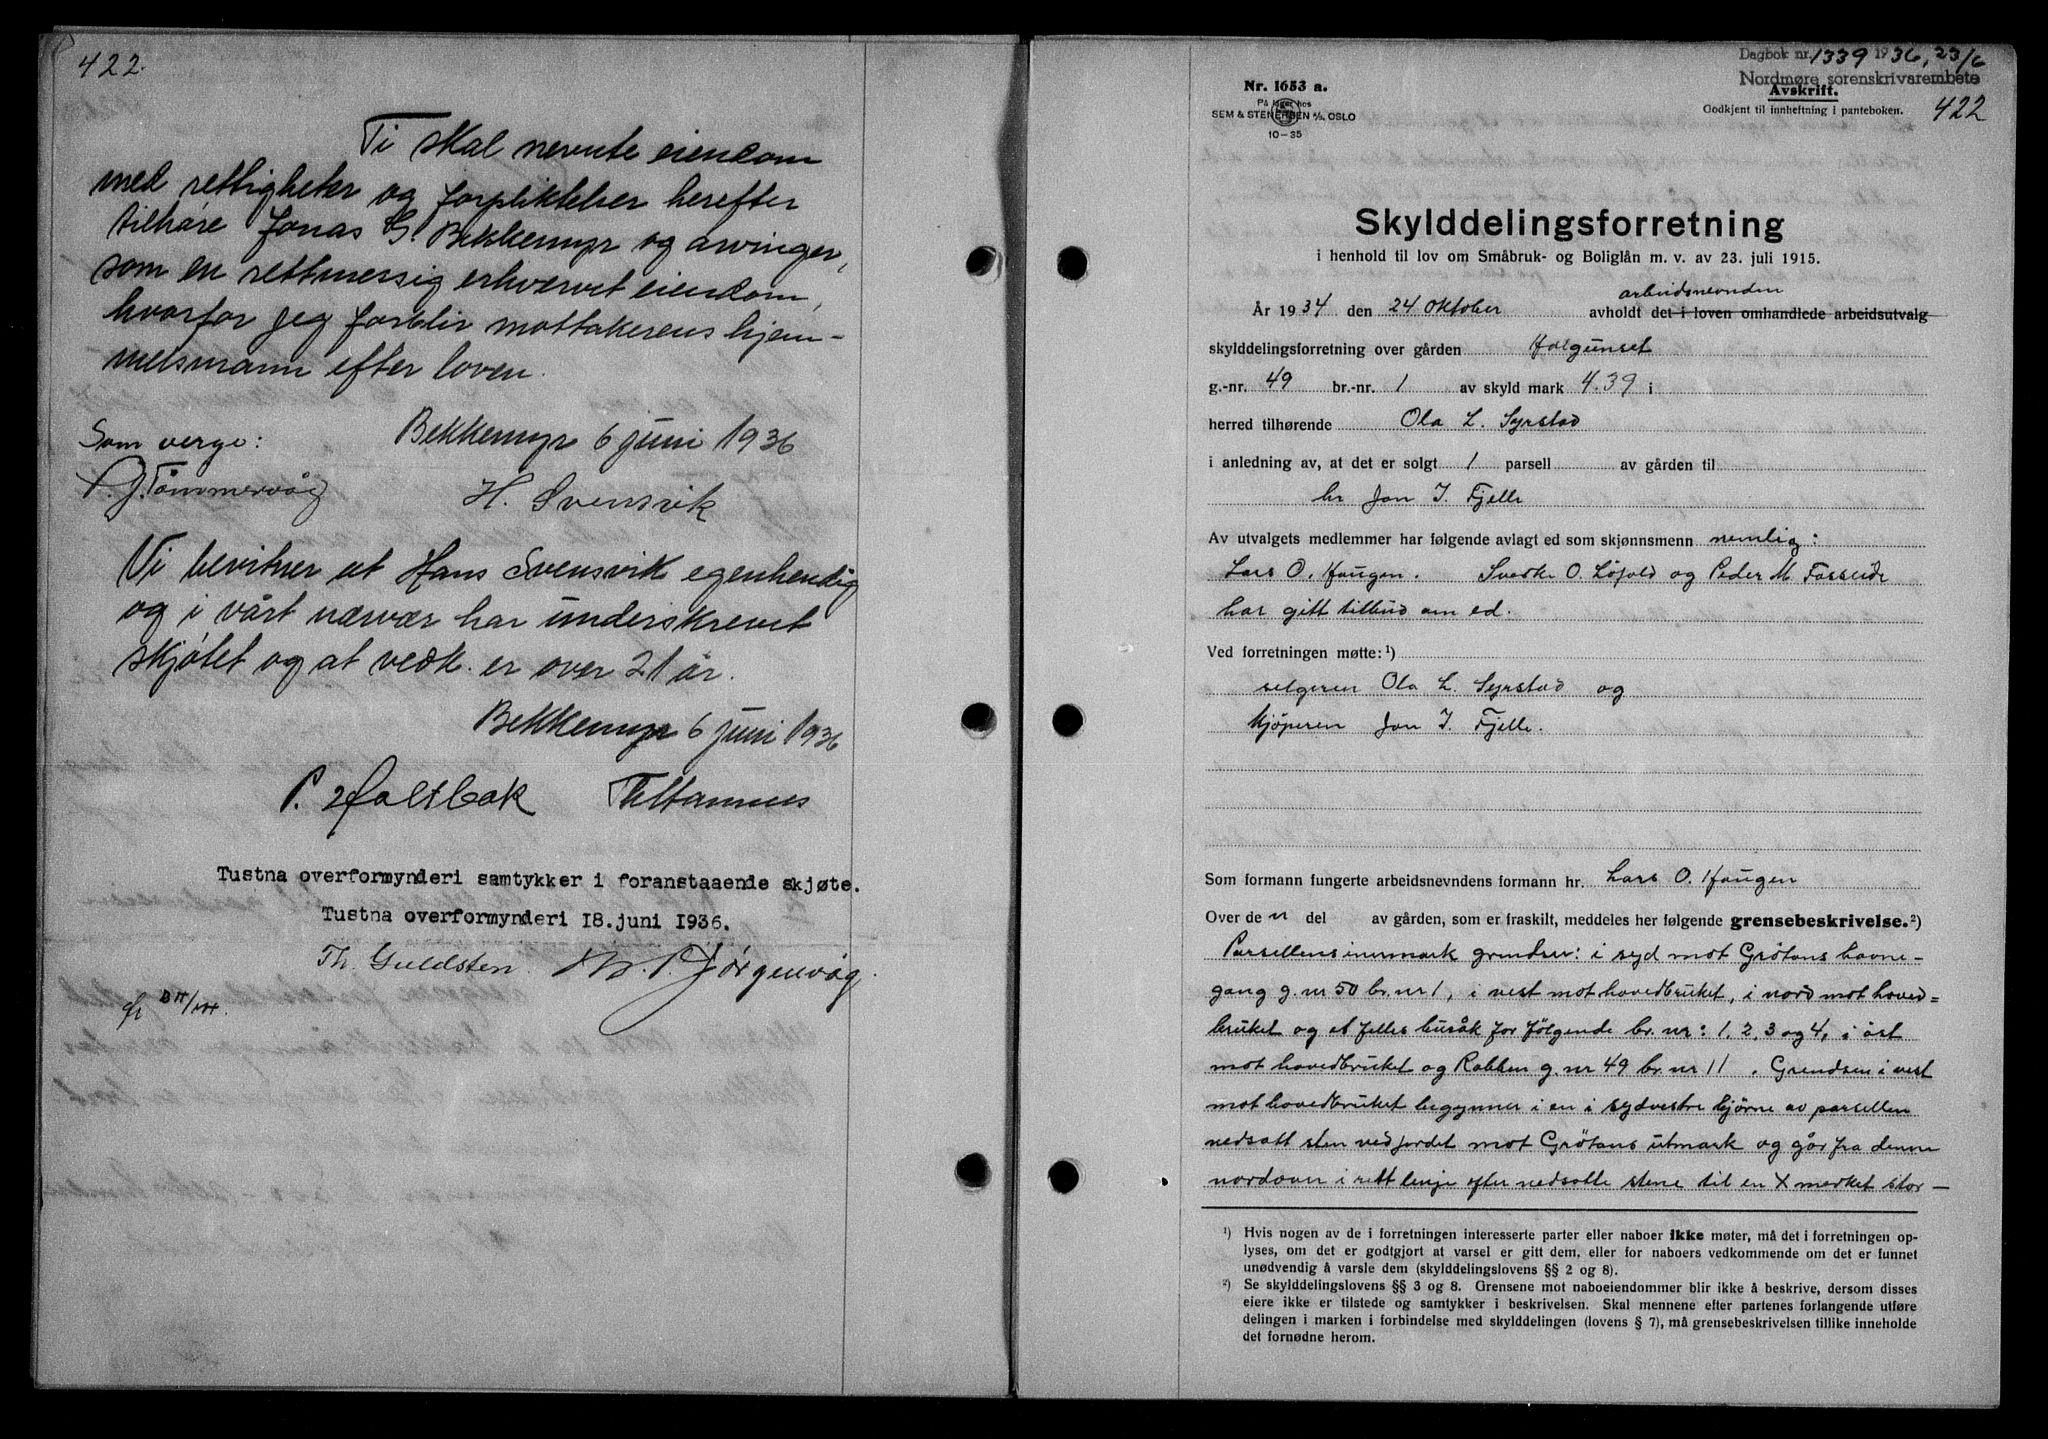 422.
Ti skal nevnte eiendom
med rettigheter og forpliktelser herefter
tilhøre Jonas G. Bekkemyr og arvinger,
som en rettmessig erhvervet eiendom,
hvorfor jeg forblir mottakerens hjem-
melsmann efter loven.
Bekkemyr 6 juni 1936
Som verge:
P. J. Tømmervåg
H. Svensvik
Vi bevitner at Hans Svensvik egenhendig
og i vårt nærvær har underskrevet
skjøtet og at vedk. er over 21 år.
Bekkemyr 6 juni 1936
P. Holtbak
Tustna overformynderi samtykker i foranstaaende skjøte.
Tustna overformynderi 18. juni 1936.
Th. Guldsten. P. Jørgenvåg
Dagbok nr. 1339 1936, 23/6
Nordmøre sorenskrivarembete
Nr. 1653 a.
På lager hos
SEM & STENERSEN A/S, OSLO
10-35
Avskrift.
Godkjent til innheftning i panteboken.
422
Skylddelingsforretning
i henhold til lov om Småbruk- og Boliglån m. v. av 23. juli 1915.
arbeidsnevnden
År 1934 den 24 Oktober avholdt det i loven omhandlede arbeidsutvalg
skylddelingsforretning over gården Halgunset
g.-nr. 49 br.-nr. 1 av skyld mark 4.39 i
herred tilhørende Ola L. Syrstad
i anledning av, at det er solgt 1 parsell av gården til
hr Jon I. Fjelle
Av utvalgets medlemmer har følgende avlagt ed som skjønnsmenn nemlig:
Lars O. Haugen. Sverke O. Løfald og Peder M. Fasseide
har gitt tilbud om ed.
Ved forretningen møtte: ¹)
selgeren Ola L. Syrstad og
kjøperen Jon I. Fjelle.
Som formann fungerte arbeidsnevndens formann hr. Lars O. Haugen
Over den del av gården, som er fraskilt, meddeles her følgende grensebeskrivelse. ²)
Parsellens innmark grendser: i syd mot Grøtans havne-
gang g. nr 50 br. nr 1, i vest mot hovedbruket, i nord mot hoved=
bruket og et felles busåk for følgende br. nr: 1, 2, 3 og 4, i øst
mot hovedbruket og Rabben g. nr 49 br. nr 11. Grendsen i vest
mot hovedbruket begynner i en i sydvestre hjørne av parsellen
nedsatt sten ved jordet mot Grøtans utmark og går fra denne
nordover i rett linje efter nedsatte stene til en X merket stor-
¹) Hvis nogen av de i forretningen interesserte parter eller naboer ikke møter, må det i forretningen op-
lyses, om det er godtgjort at varsel er gitt dem, eller for naboers vedkommende om det er funnet
unødvendig å varsle dem (skylddelingslovens §§ 2 og 8).
²) Se skylddelingslovens §§ 3 og 8. Grensene mot naboeiendommer blir ikke å beskrive, dersom disses
eiere ikke er tilstede og samtykker i beskrivelsen. Skal mennene efter partenes forlangende utføre
delingen i marken i forbindelse med skylddelingen (lovens § 7), må grensebeskrivelsen tillike inneholde
det fornødne herom.